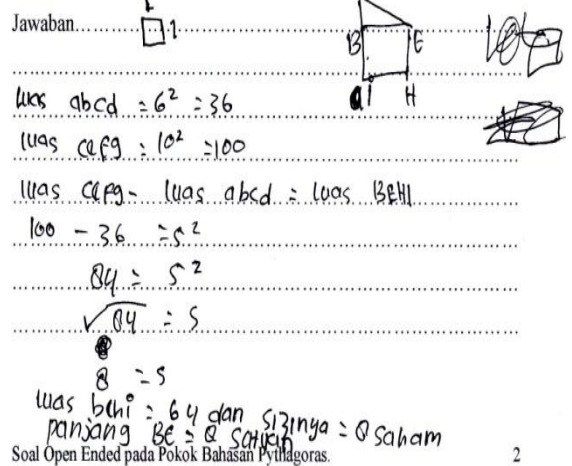 1
Jawaban 1
B E
I H
luas abcd = 6² = 36
luas cefg = 10² = 100
luas cefg - luas abcd = luas BEHI
100 - 36 = s²
84 = s²
√84 = s
8 = s
luas behi = 64 dan sisinya = 8 satuan
panjang BE = 8 satuan
Soal Open Ended pada Pokok Bahasan Pythagoras. 2